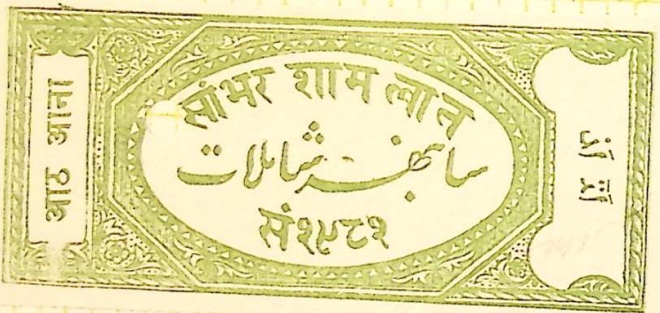 आठ आना
सांभर शाम लात
سانبھر شاملات
सं१९८१